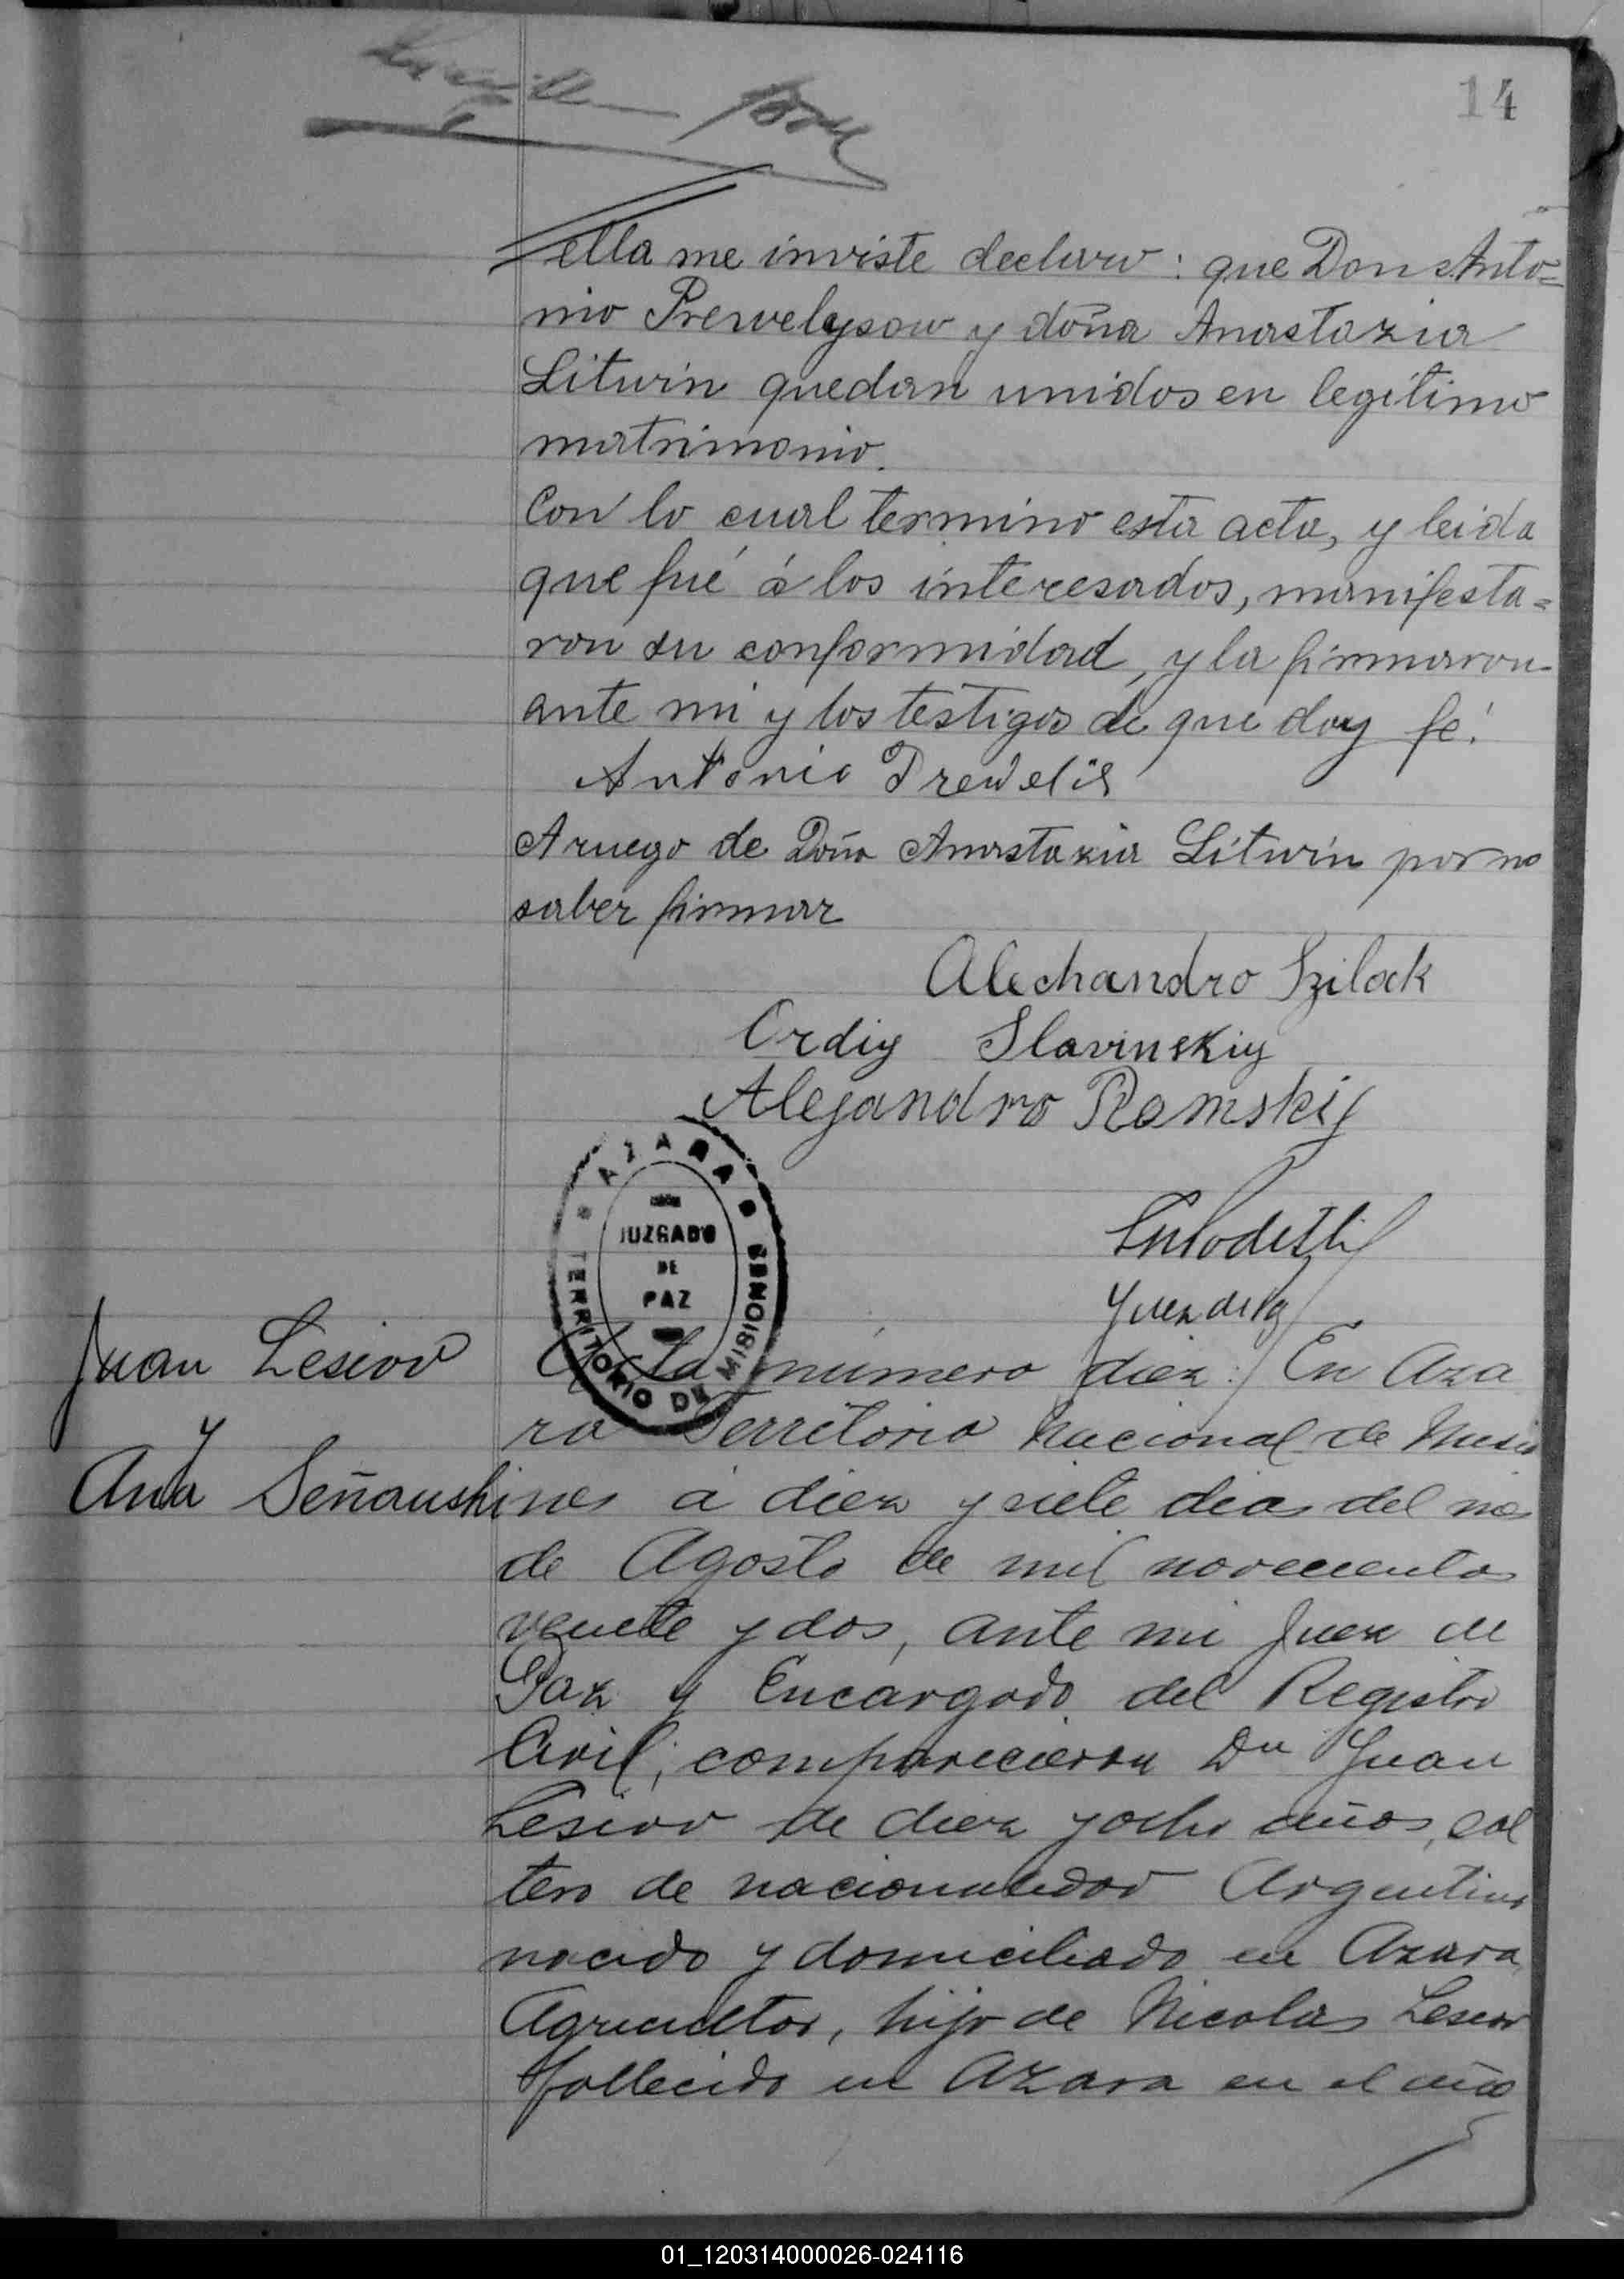 14
ella me inviste declaro: que Don Anto=
nio Prewelysow y doña Anastazia
Litwin quedan unidos en legítimo
matrimonio.
Con lo cual termino esta acta, y leida
que fué á los interesados, manifesta=
ron su conformidad, y la firmaron
ante mi y los testigos de que doy fé.
Antonio Prewelis
A ruego de Doña Anastazia Litwin por no
saber firmar
Alechandro Szilack
Ordiy Slavinskiy
Alejandro Romskiy
AZARA
TERRITORIO DE MISIONES
JUZGADO
DE
PAZ
Juez de Paz
Juan Lesiow
y
Ana Señaushi
Acta número diez: En Aza
ra Territorio Nacional de Misio
nes a diez y siete dias del mes
de Agosto de mil novecientos
veinte y dos, ante mi Juez de
Paz y Encargado del Registro
Civil; comparecieron Dn Juan
Lesiow de diez y ocho años, sol
tero de nacionalidad Argentina
nacido y domiciliado en Azara
Agricultor, hijo de Nicolas Lesiow
fallecido en Azara en el año
01_120314000026-024116